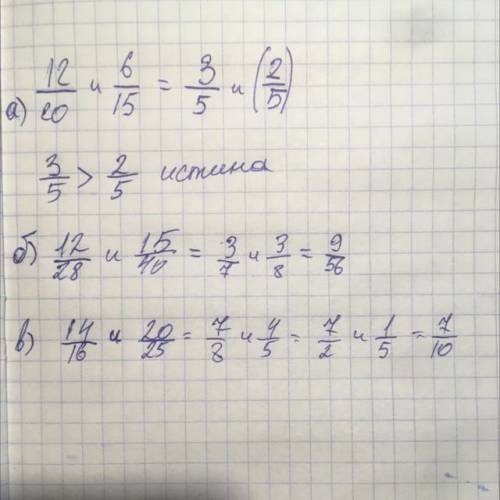 а) 12/20 и 6/15 = 3/5 и (2/5)
3/5 > 2/5 истина
б) 12/28 и 15/40 = 3/7 и 3/8 = 9/56
в) 14/16 и 20/25 = 7/8 и 4/5 = 7/2 и 1/5 = 7/10